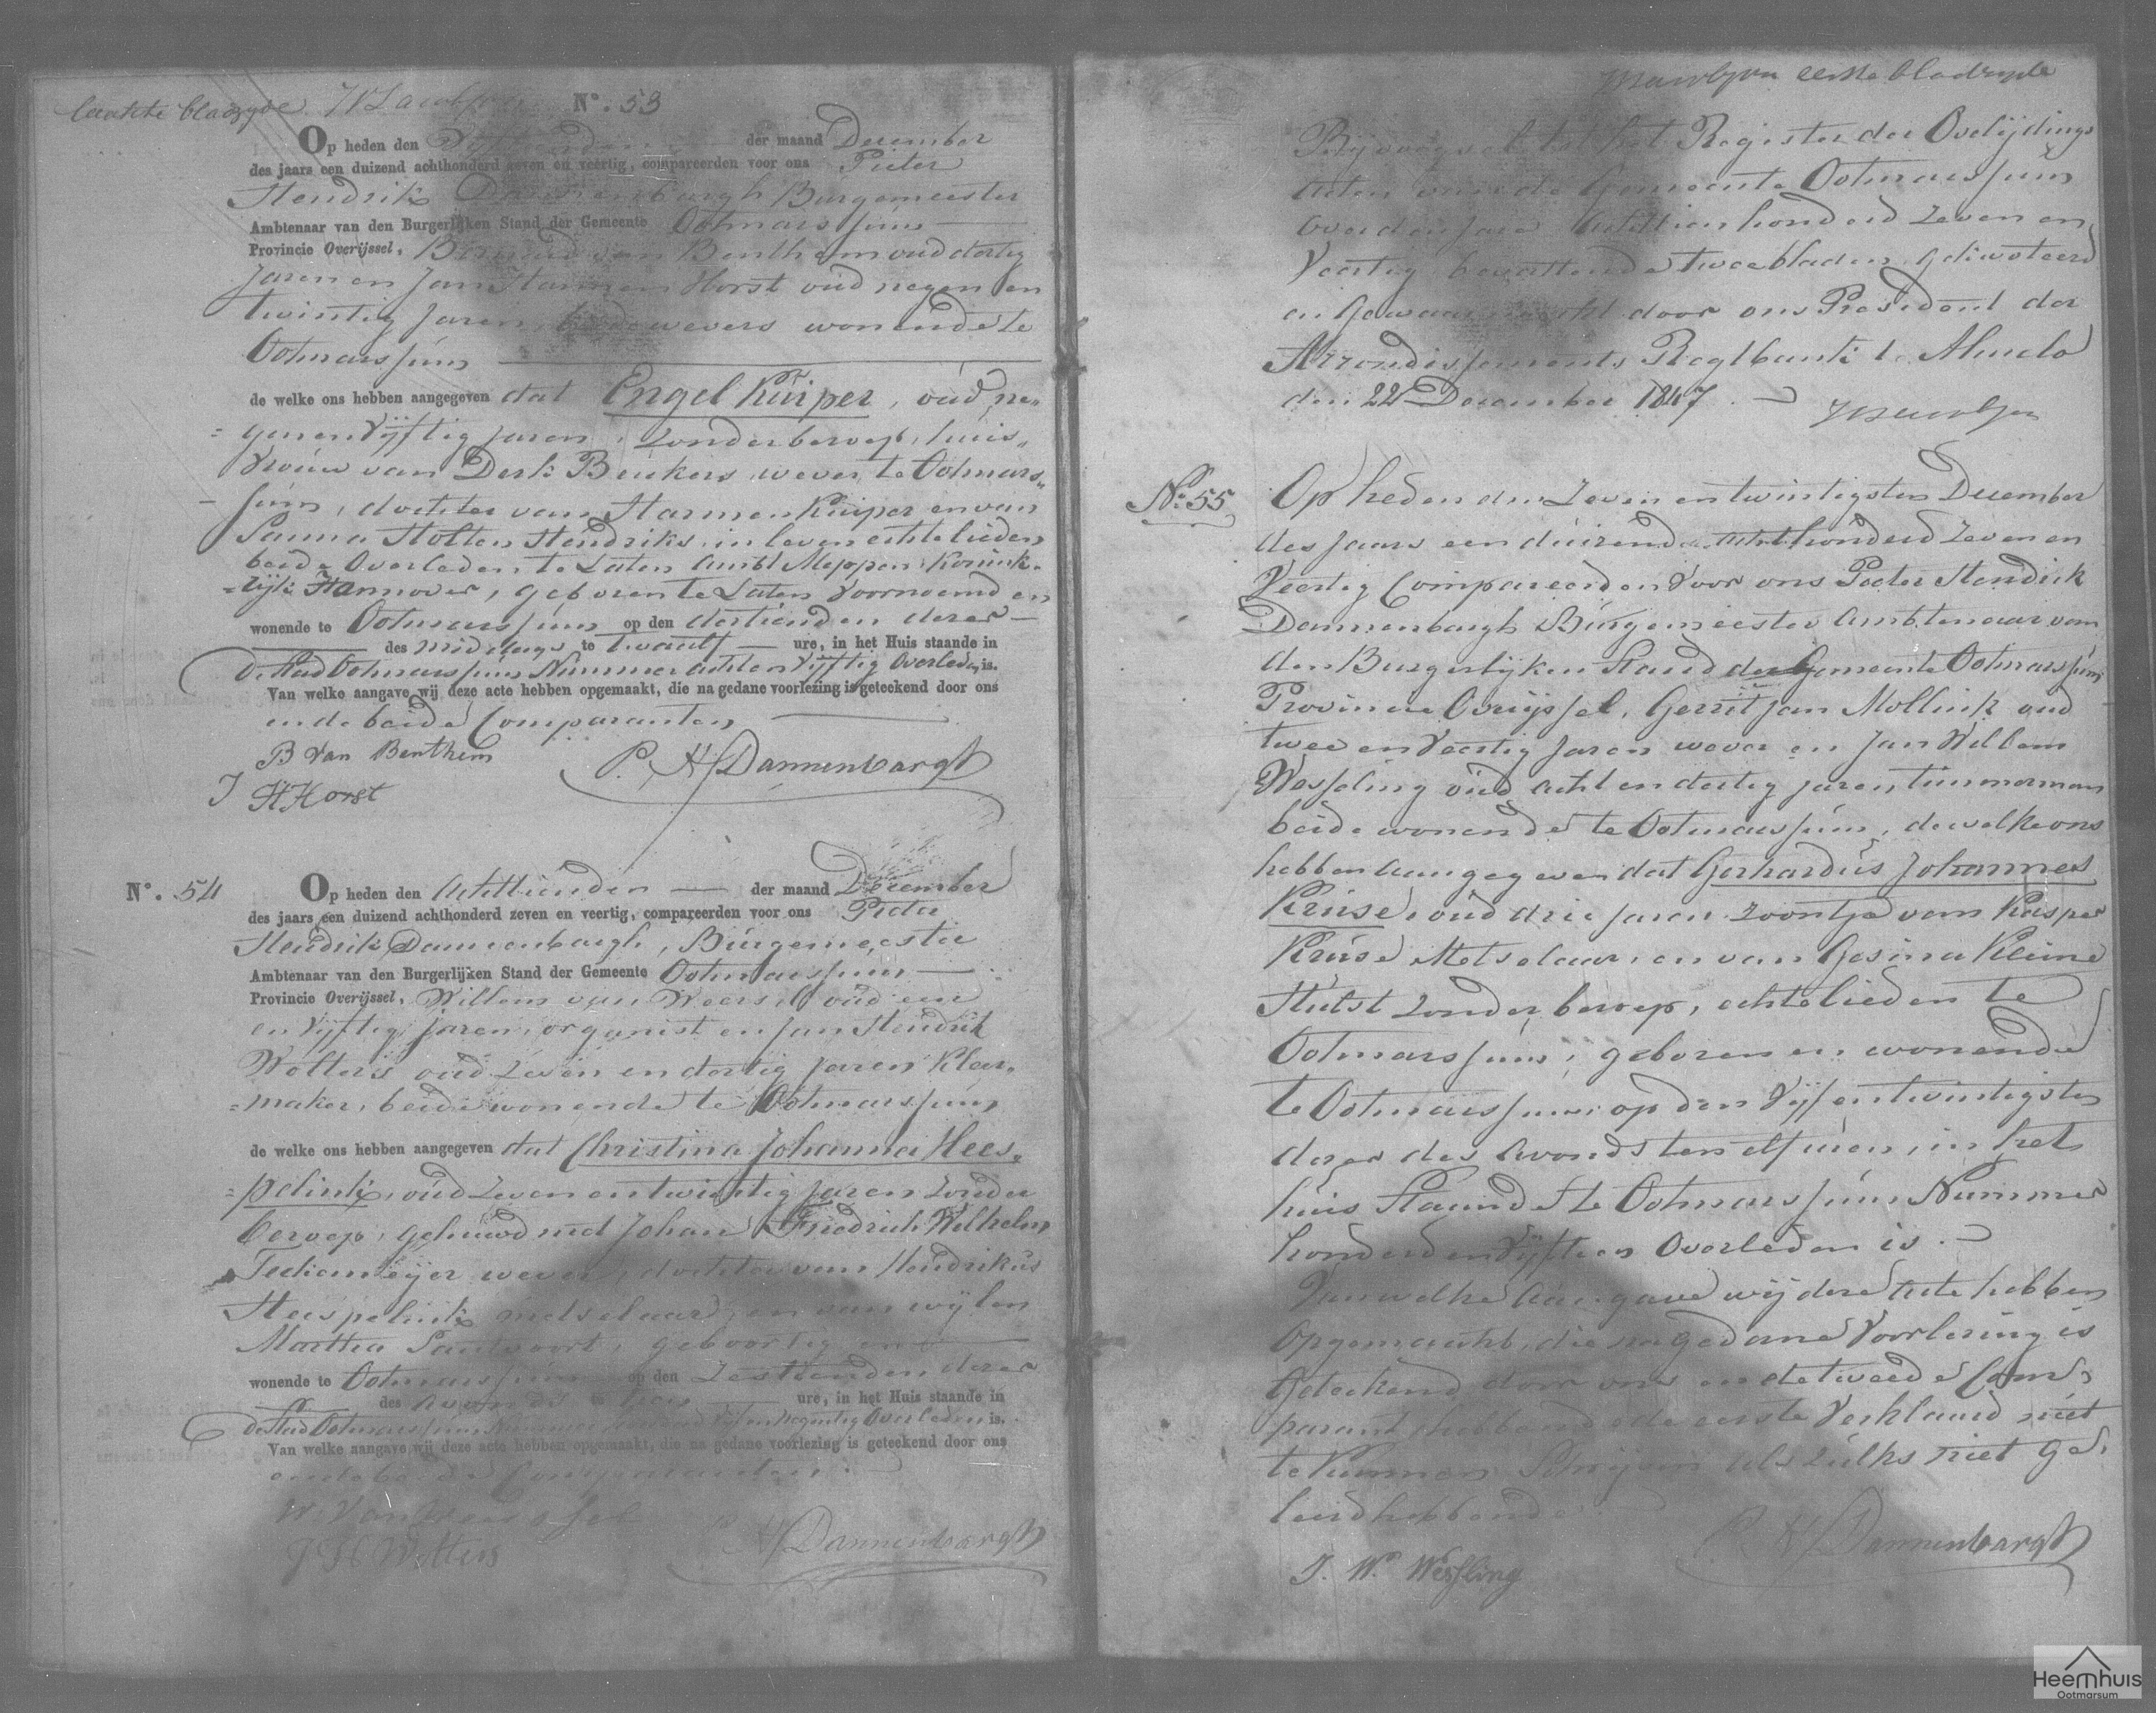 laatste bladzyde
N°. 53
Op heden den der maand December
des jaars een duizend achthonderd zeven en veertig, compareerden voor ons Pieter
Hendrik Dannenbargh Burgemeester
Ambtenaar van den Burgerlijken Stand der Gemeente Ootmarssum
Provincie Overijssel, van Benthem oud dertig
Jaren en Jan Harmen Horst oud negen en
twintig Jaren, beide wevers wonende te
Ootmarssum
de welke ons hebben aangegeven dat Engel Kuiper, oud ne„
=genenvijftig jaren, zonder beroep, huis„
vrouw van Derk Beukers wever te Ootmars„
-sum, dochter van Harmen Kuiper en van
Sanna Holten Hendriks, in leven echtelieden
beide Overleden te Laten Ambt Meppen Konink„
=lijk Hannover, geboren te Laten voornoemd en
wonende te Ootmarssum op den dertienden dezer
des middags te twaalf ure, in het Huis staande in
de Stad Ootmarssum Nummer acht en vijftig Overleden is.
Van welke aangave wij deze acte hebben opgemaakt, die na gedane voorlezing is geteekend door ons
en de beide Comparanten
B van Benthem P. H. Dannenbargh
J H Horst
N°. 54 Op heden den Achttienden der maand December
des jaars een duizend achthonderd zeven en veertig, compareerden voor ons Pieter
Hendrik Dannenbargh, Burgemeester
Ambtenaar van den Burgerlijken Stand der Gemeente Ootmarssum
Provincie Overijssel, Willem van Weersel oud een
en vijftig jaren, organist en Jan Hendrik
Wolters oud zeven en dertig jaren Kleer„
=maker, beide wonende te Ootmarssum
de welke ons hebben aangegeven dat Christina Johanna Hees„
=pelink, oud zeven en twintig jaren zonder
beroep, gehuwd met Johan Friedrich Wilhelm
wever, dochter van Hendrikus
Heespelink metselaar, en van wijlen
Martha geboortig en
wonende te Ootmarssum op den Zestienden dezer
des avonds te ure, in het Huis staande in
de Stad Ootmarssum Nummer Overleden is.
Van welke aangave wij deze acte hebben opgemaakt, die na gedane voorlezing is geteekend door ons
en de beide Comparanten.
W. van Weersel
J H Wolters P. H. Dannenbargh
eerste bladzyde
Bijvoegsel tot het Register der Overlijdings
acten van de Gemeente Ootmarssum
over den Jare Achttien honderd zeven en
veertig bevattende twee bladen, gekwoteerd
en gewaarmerkt door ons President der
Arrondissements Regtbank te Almelo
den 22 December 1847.
N°. 55 Op heden den Zeven en twintigsten December
des Jaars een duizend achthonderd zeven en
Veertig Compareerden voor ons Pieter Hendrik
Dannenbargh Burgemeester Ambtenaar van
den Burgerlijken Stand der Gemeente Ootmarssum
Provincie Overijssel, Gerrit Jan Mollink oud
twee en veertig Jaren wever en Jan Willem
Wesseling oud acht en dertig jaren timmerman
beide wonende te Ootmarssum, de welke ons
hebben aangegeven dat Gerhardus Johannes
Kruse, oud drie jaren zoontje van Kasper
Kruse Metselaar, en van Gesina Kleine
Hulst zonder beroep, echtelieden te
Ootmarssum, geboren en wonende
te Ootmarssum op den Vijf en twintigsten
dezer des avonds ten elf uren, in het
huis Staande te Ootmarssum Nummer
honderd en vijftien Overleden is.
Van welke aangave wij deze Acte hebben
Opgemaakt, die na gedane Voorlezing is
Geteekend door ons en de tweede Com„
parant hebbende de eerste Verklaard niet
te kunnen Schrijven als zulks niet ge„
leerd hebbende.
P. H. Dannenbargh
J. W. Wesseling
Heemhuis
Ootmarsum